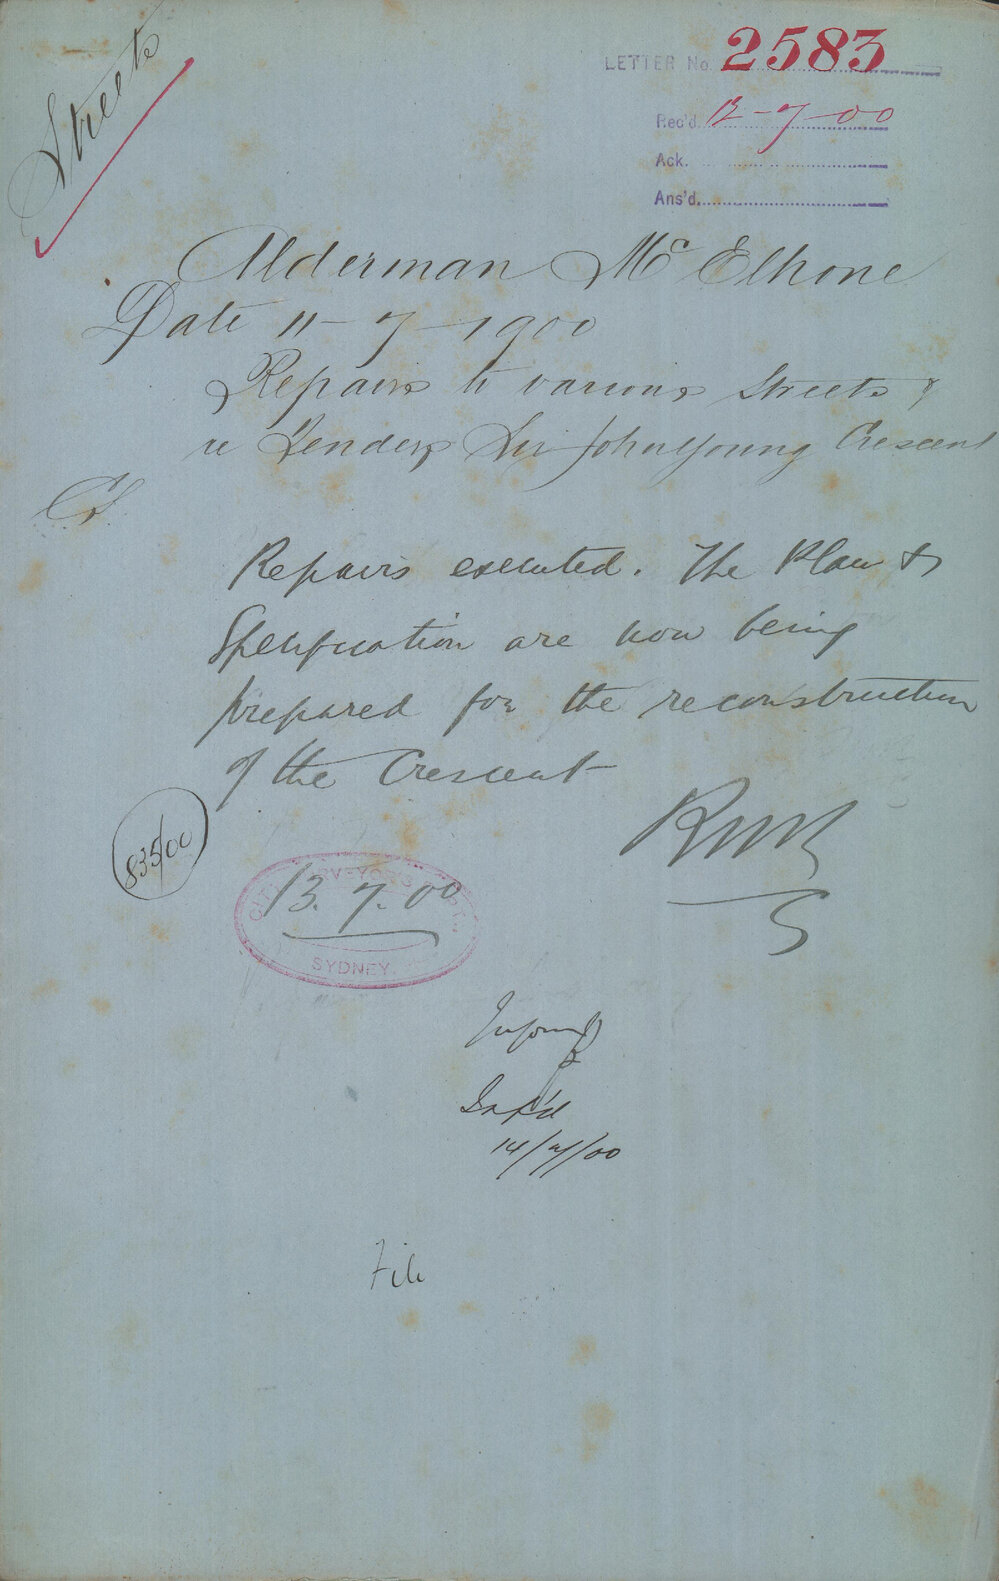 Streets
LETTER No. 2583
Rec'd. 12-7-00
Ack.
Ans'd.
Alderman McElhone
Date 11-7-1900
Repairs to various Streets &
re Tenders Sir John Young Crescent
C.S.
Repairs executed. The Plan &
Specification are now being
prepared for the reconstruction
of the Crescent
835/00
CITY SURVEYOR'S DEPT.
13.7.00
SYDNEY
Inform
Inf'd
14/7/00
File